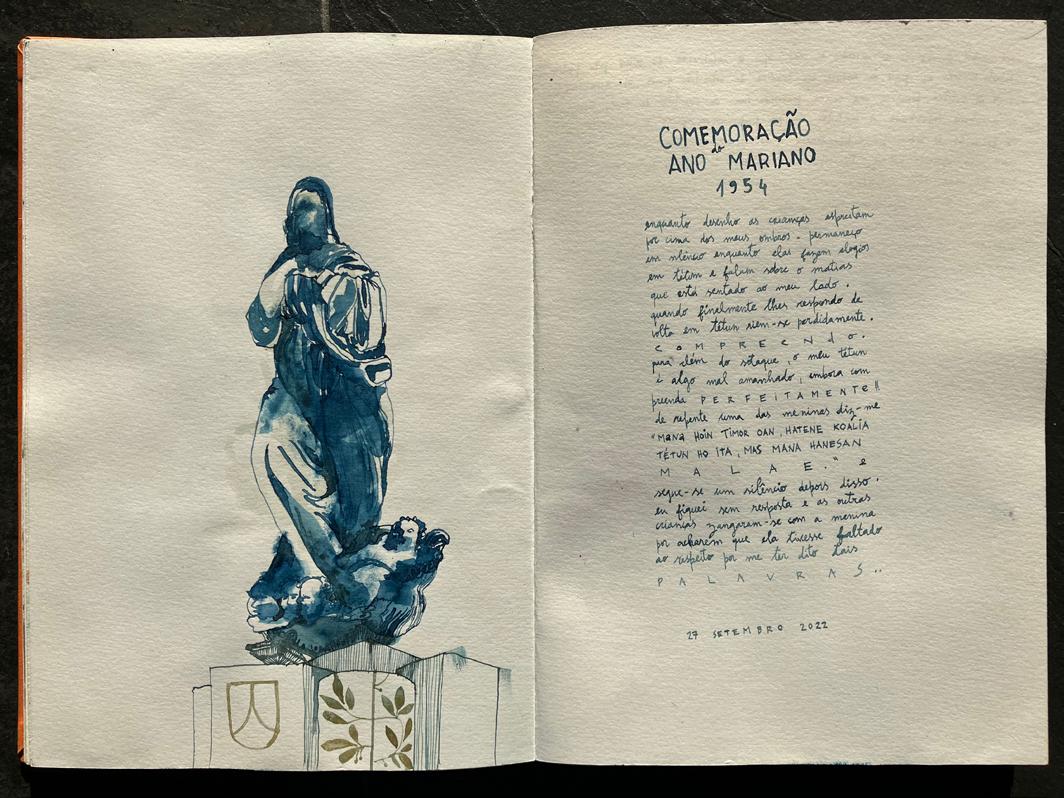 COMEMORAÇÃO
do
ANO MARIANO
1954
enquanto desenho as crianças espreitam
por cima dos meus ombros. permaneço
em silêncio enquanto elas fazem elogios
em tétum e falam sobre o matias
que está sentado ao meu lado.
quando finalmente lhes respondo de
volta em tétun riem-se perdidamente.
COMPREENdo.
para além do sotaque o meu tétun
é algo mal amanhado, embora com
preenda PERFEITAMENTE!!
de repente uma das meninas diz-me
"MANA HOIN TIMOR OAN, HATENE KOALIA
TÉTUN HO ITA, MAS MANA HANESAN
MALAE." e
segue-se um silêncio depois disso.
eu fiquei sem resposta e as outras
crianças zangaram-se com a menina
por acharem que ela tivesse faltado
ao respeito por me ter dito tais
PALAVRAS..
27 SETEMBRO 2022